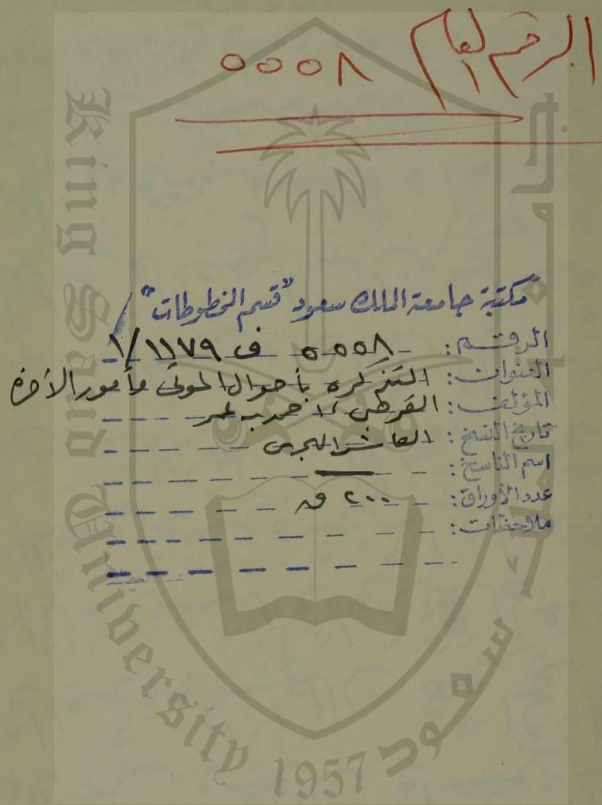 الرقم العام ٥٥٥٨
مكتبة جامعة الملك سعود "قسم المخطوطات"
الرقم: ٥٥٥٨ ف ١١٧٩/١
العنوان: التذكرة بأحوال الموتى وأمور الآخرة
المؤلف: القرطبي، احمد بن عمر
تاريخ النسخ: العاشر الهجري
اسم الناسخ:
عدد الأوراق: ٢٠٠ ق
ملاحظات:
King Saud University
1957
جامعة الملك سعود